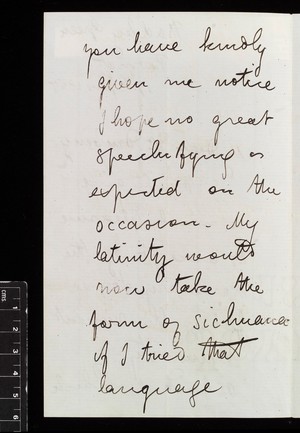 you have kindly
given me notice
I hope no great
speechifying is
expected on the
occasion. My
latinity would
now take the
form of
if I tried that
language
cms
1
2
3
4
5
6